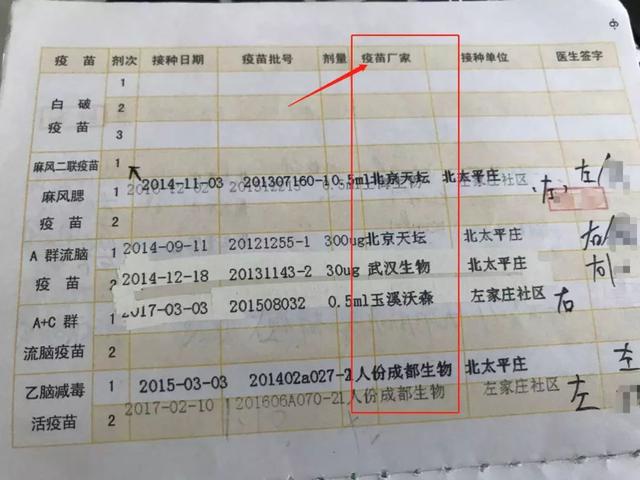 疫 苗 剂次 接种日期 疫苗批号 剂量 疫苗厂家 接种单位 医生签字
白 破 疫 苗 1
2
3
麻风二联疫苗 1 2014-11-03 201307160-1 0.5ml 北京天坛 北太平庄 左
麻风腮 疫 苗 1 左家庄社区 左
2
A 群流脑 疫 苗 1 2014-09-11 20121255-1 300ug 北京天坛 北太平庄 右
2 2014-12-18 20131143-2 30ug 武汉生物 北太平庄 右
A+C 群 流脑疫苗 1 2017-03-03 201508032 0.5ml 玉溪沃森 左家庄社区 右
2
乙脑减毒 活疫苗 1 2015-03-03 201402a027-2 1人份 成都生物 北太平庄 左
2 2017-02-10 201606A070-2 1人份 成都生物 左家庄社区 左